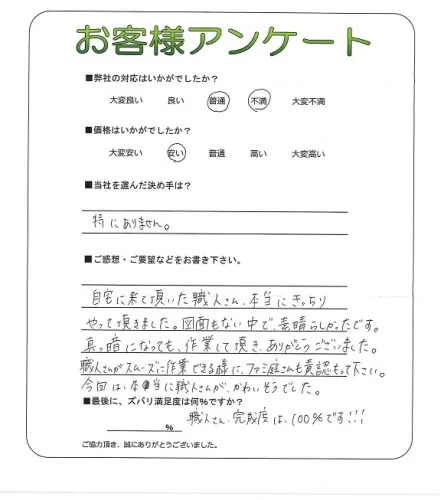 お客様アンケート
■弊社の対応はいかがでしたか？
大変良い 良い 普通 不満 大変不満
■価格はいかがでしたか？
大変安い 安い 普通 高い 大変高い
■当社を選んだ決め手は？
特にありません。
■ご感想・ご要望などをお書き下さい。
自宅に来て頂いた職人さん、本当にきっちり
やって頂きました。図面もない中で、素晴らしかったです。
真っ暗になっても、作業して頂き、ありがとうございました。
職人さんがスムーズに作業できる様に、ファミ庭さんも責認もって下さい。
今回は、本当に職人さんが、かわいそうでした。
■最後に、ズバリ満足度は何％ですか？
職人さん、完成度は、100％です!!!
％
ご協力頂き、誠にありがとうございました。